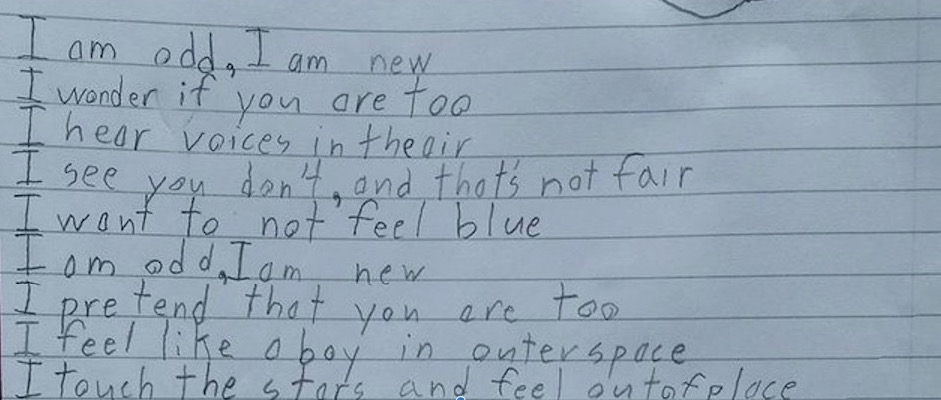 I am odd, I am new
I wonder if you are too
I hear voices in the air
I see you don't, and that's not fair
I want to not feel blue
I am odd, I am new
I pretend that you are too
I feel like a boy in outerspace
I touch the stars and feel out of place